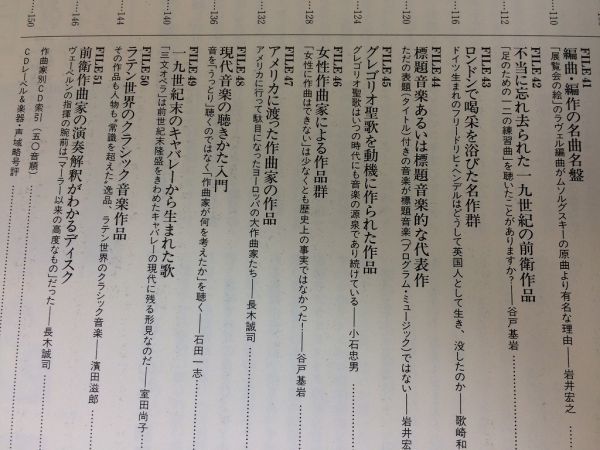 FILE 41
編曲・編作の名曲名盤
「展覧会の絵」のラヴェル編曲がムソルグスキーの原曲より有名な理由――岩井宏之
110
FILE 42
不当に忘れ去られた一九世紀の前衛作品
「足のための一二の練習曲」を聴いたことがありますか?――谷戸基岩
112
FILE 43
ロンドンで喝采を浴びた名作群
ドイツ生まれのフリードリヒ・ヘンデルはどうして英国人として生き、没したのか――歌崎和
116
FILE 44
標題音楽あるいは標題音楽的な代表作
ただの表題(タイトル)付きの音楽が標題音楽(プログラム・ミュージック)ではない――岩井宏
120
FILE 45
グレゴリオ聖歌を動機に作られた作品
グレゴリオ聖歌はいつの時代にも音楽の源泉であり続けている――小石忠男
124
FILE 46
女性作曲家による作品群
「女性に作曲はできない」は少なくとも歴史上の事実ではなかった!――谷戸基岩
128
FILE 47
アメリカに渡った作曲家の作品
アメリカに行って駄目になったヨーロッパの大作曲家たち――長木誠司
132
FILE 48
現代音楽の聴きかた入門
音を「うっとり」聴くのではなく「作曲家が何を考えたか」を聴く――石田一志
136
FILE 49
一九世紀末のキャバレーから生まれた歌
「三文オペラ」は前世紀末隆盛をきわめたキャバレーの現代に残る形見なのだ――室田尚子
140
FILE 50
ラテン世界のクラシック音楽作品
その作品も人物も。常識を超えた逸品、ラテン世界のクラシック音楽――濱田滋郎
144
FILE 51
前衛作曲家の演奏解釈がわかるディスク
ヴェーベルンの指揮の腕前は「マーラー以来の高度なもの」だった――長木誠司
146
作曲家別CD索引(五〇音順)
CDレーベル&楽器・声域略号評
150